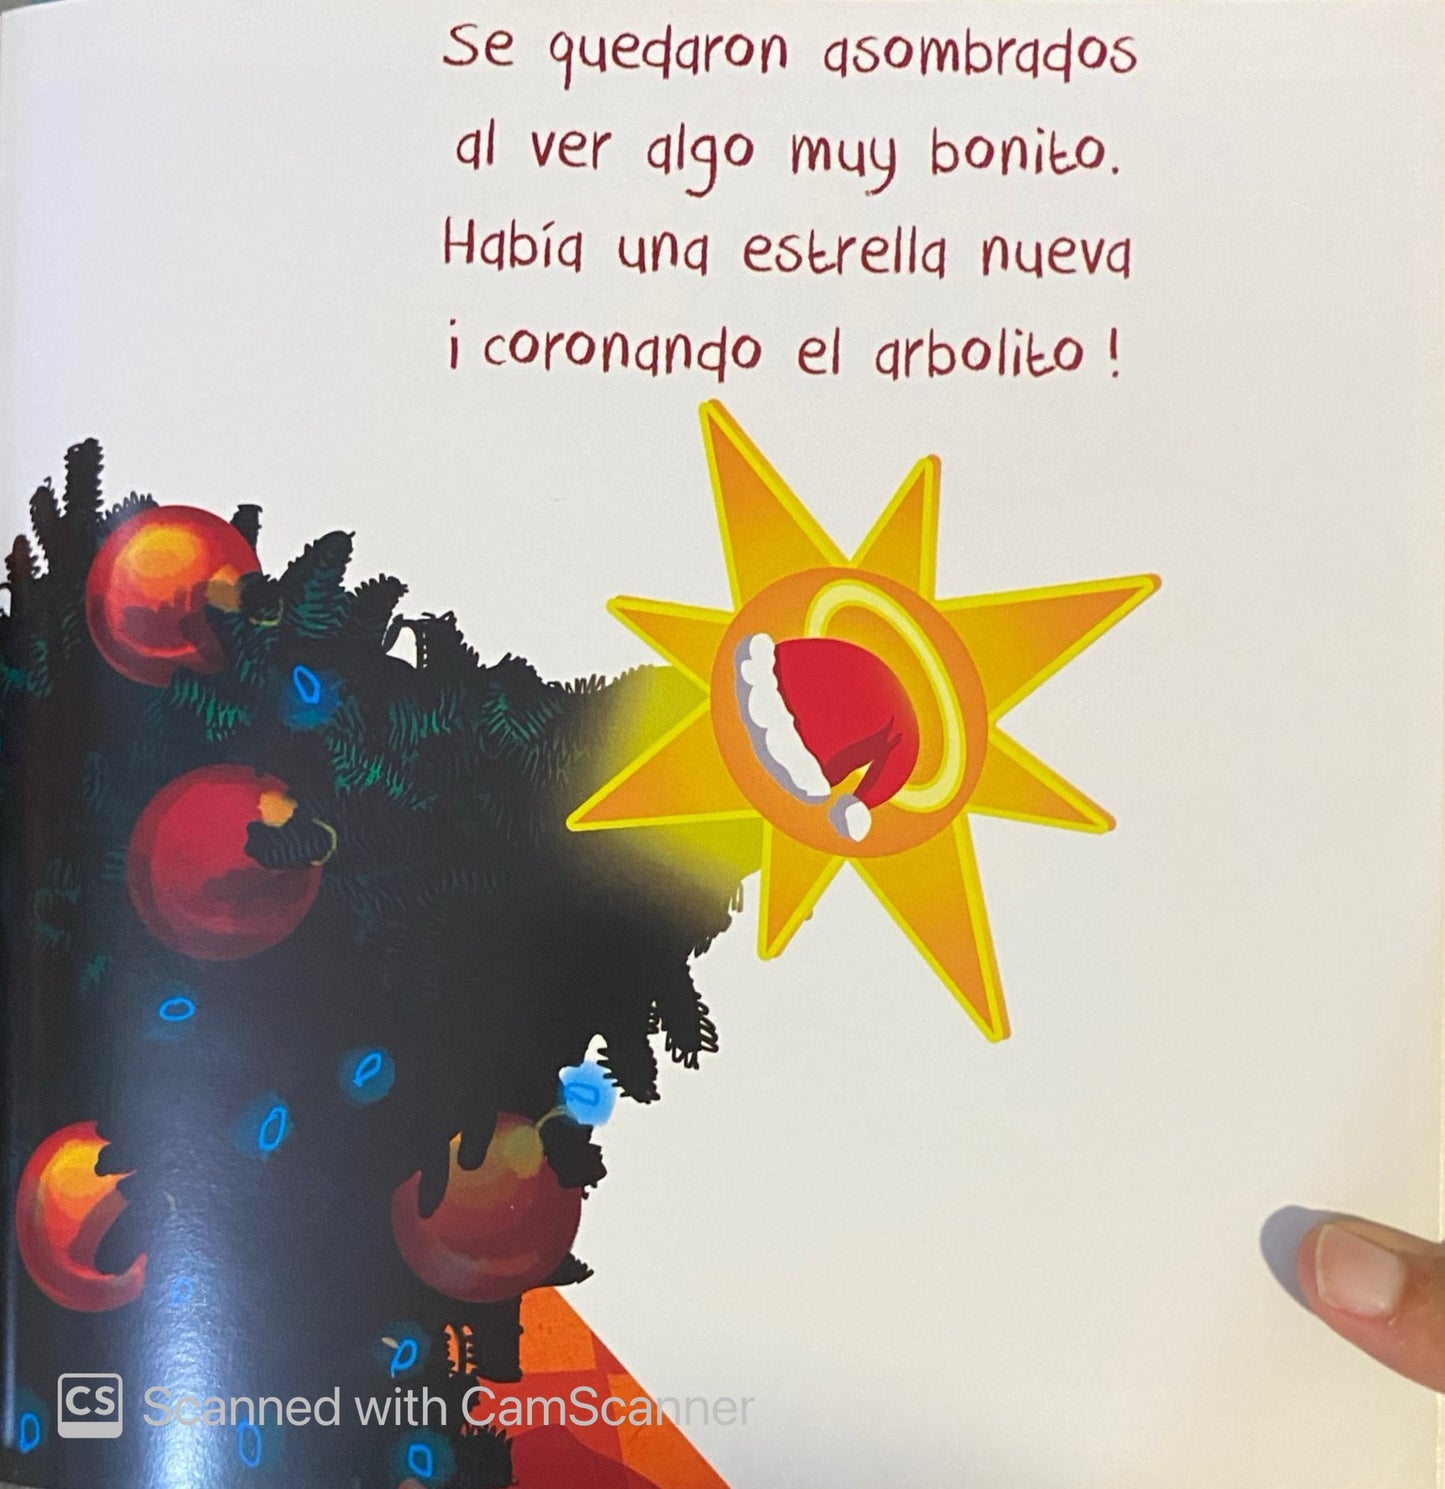 Se quedaron asombrados
al ver algo muy bonito.
Había una estrella nueva
¡coronando el arbolito!
CS Scanned with CamScanner